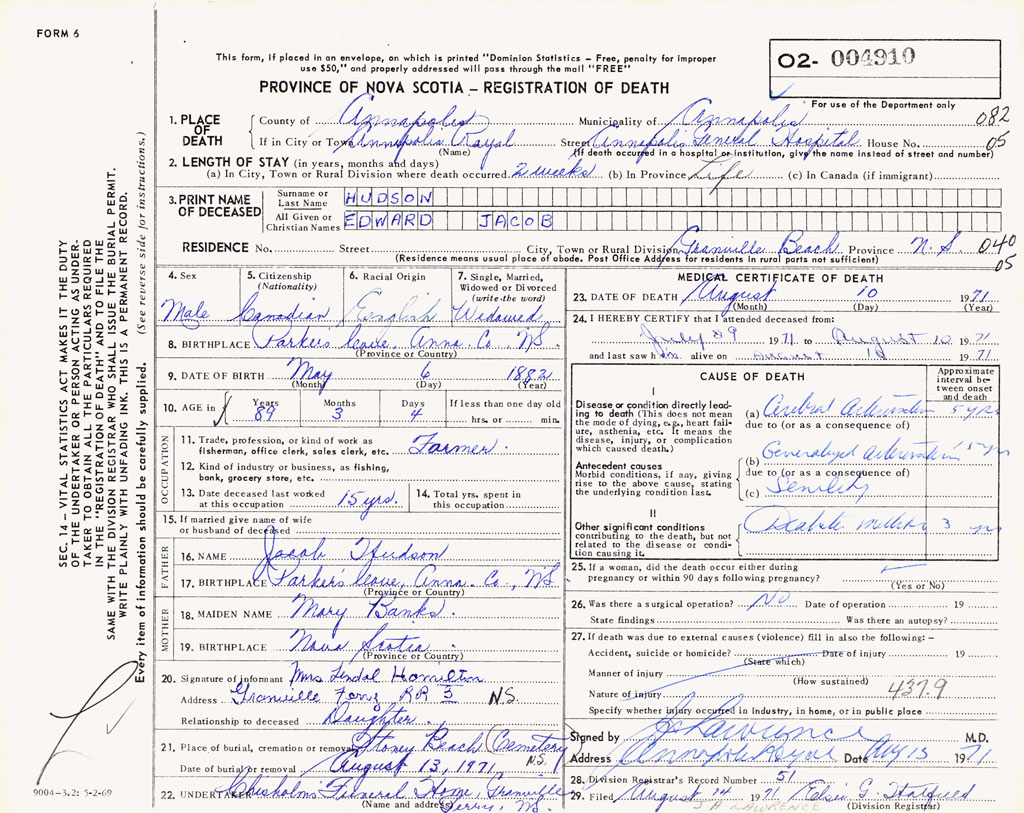 FORM 6
This form, if placed in an envelope, on which is printed "Dominion Statistics – Free, penalty for improper
use $50," and properly addressed will pass through the mail "FREE"
O2- 004910
PROVINCE OF NOVA SCOTIA – REGISTRATION OF DEATH
For use of the Department only
1. PLACE OF DEATH
County of Annapolis Municipality of Annapolis 082
If in City or Town Annapolis Royal Street Annapolis General Hospital House No. 05
(Name) (If death occurred in a hospital or institution, give the name instead of street and number)
2. LENGTH OF STAY (in years, months and days)
(a) In City, Town or Rural Division where death occurred. 2 weeks (b) In Province Life (c) In Canada (if immigrant)
3. PRINT NAME OF DECEASED
Surname or Last Name HUDSON
All Given or Christian Names EDWARD JACOB
RESIDENCE No. Street City, Town or Rural Division Granville Beach Province N.S. 040
05
(Residence means usual place of abode. Post Office Address for residents in rural parts not sufficient)
4. Sex 5. Citizenship 6. Racial Origin 7. Single, Married,
(Nationality) Widowed or Divorced
(write the word)
Male Canadian English Widowed
8. BIRTHPLACE Parkers Cove, Anna. Co NS.
(Province or Country)
9. DATE OF BIRTH May 6 1882
(Month) (Day) (Year)
10. AGE in Years Months Days If less than one day old
89 3 4 hrs. or min.
OCCUPATION
11. Trade, profession, or kind of work as
fisherman, office clerk, sales clerk, etc. Farmer.
12. Kind of industry or business, as fishing,
bank, grocery store, etc.
13. Date deceased last worked at this occupation 15 yrs.
14. Total yrs. spent in this occupation
15. If married give name of wife
or husband of deceased
FATHER
16. NAME Jacob Hudson
17. BIRTHPLACE Parker's Cove, Anna. Co, NS.
(Province or Country)
MOTHER
18. MAIDEN NAME Mary Banks.
19. BIRTHPLACE Nova Scotia
(Province or Country)
20. Signature of informant Mrs Hamilton
Address Granville Ferry RR 3 N.S.
Relationship to deceased Daughter.
21. Place of burial, cremation or removal Stoney Beach (Cemetery)
N.S.
Date of burial or removal August 13, 1971,
22. UNDERTAKER Chisholms Funeral Home, Granville
(Name and address) Ferry, NS.
MEDICAL CERTIFICATE OF DEATH
23. DATE OF DEATH August 10 1971
(Month) (Day) (Year)
24. I HEREBY CERTIFY that I attended deceased from:
July 29 1971 to August 10 1971
and last saw him alive on August 10 1971
CAUSE OF DEATH
Approximate interval between onset and death
I
Disease or condition directly leading to death (This does not mean
the mode of dying, e.g., heart failure, asthenia, etc. It means the
disease, injury, or complication
which caused death.)
(a) Cerebral 5 yrs
due to (or as a consequence of)
(b) Generalized 15 yrs
Antecedent causes
Morbid conditions, if any, giving
rise to the above cause, stating
the underlying condition last.
due to (or as a consequence of)
(c) Senility
II
Other significant conditions
contributing to the death, but not
related to the disease or condition causing it.
Diabetes mellitus 3 yrs
25. If a woman, did the death occur either during
pregnancy or within 90 days following pregnancy?
(Yes or No)
26. Was there a surgical operation? NO Date of operation 19
State findings Was there an autopsy?
27. If death was due to external causes (violence) fill in also the following: –
Accident, suicide or homicide? Date of injury 19
(State which)
Manner of injury
(How sustained)
Nature of injury 437.9
Specify whether injury occurred in industry, in home, or in public place
Signed by Lawrence M.D.
Address Annapolis Royal Date Aug 13 1971
28. Division Registrar's Record Number 51
29. Filed August 14 1971 Elsie G. Hatfield
J A LAWRENCE (Division Registrar)
SEC. 14 – VITAL STATISTICS ACT MAKES IT THE DUTY
OF THE UNDERTAKER OR PERSON ACTING AS UNDERTAKER TO OBTAIN ALL THE PARTICULARS REQUIRED
IN THE "REGISTRATION OF DEATH" AND TO FILE THE
SAME WITH THE DIVISION REGISTRAR WHO SHALL ISSUE THE BURIAL PERMIT.
WRITE PLAINLY WITH UNFADING INK. THIS IS A PERMANENT RECORD.
Every item of information should be carefully supplied. (See reverse side for instructions.)
9004–3.2: 5-2-69